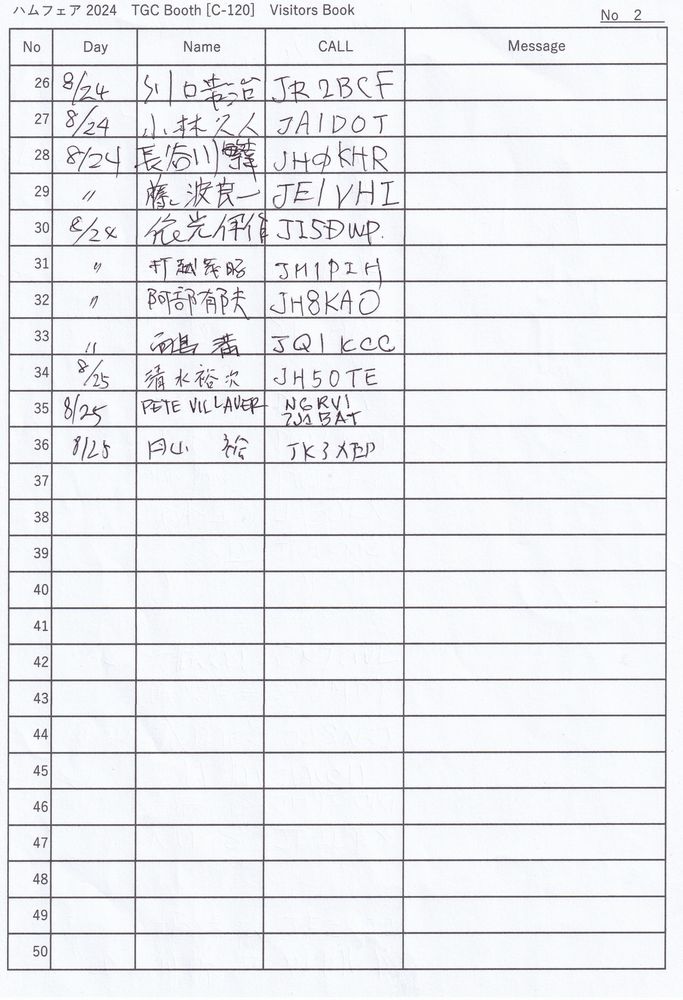 ハムフェア 2024 TGC Booth [C-120] Visitors Book
No 2
No Day Name CALL Message
26 8/24 川口 JR2BCF
27 8/24 小林久人 JA1DOT
28 8/24 長谷川 JHØKHR
29 〃 藤波良一 JE1VHI
30 8/24 JI5DWP.
31 〃 打越 JH1PIH
32 〃 阿部有 JH8KAO
33 〃 JQ1KCC
34 8/25 清水裕次 JH5OTE
35 8/25 PETE VILLAVER N6RVI
36 8/25 JK3
37
38
39
40
41
42
43
44
45
46
47
48
49
50